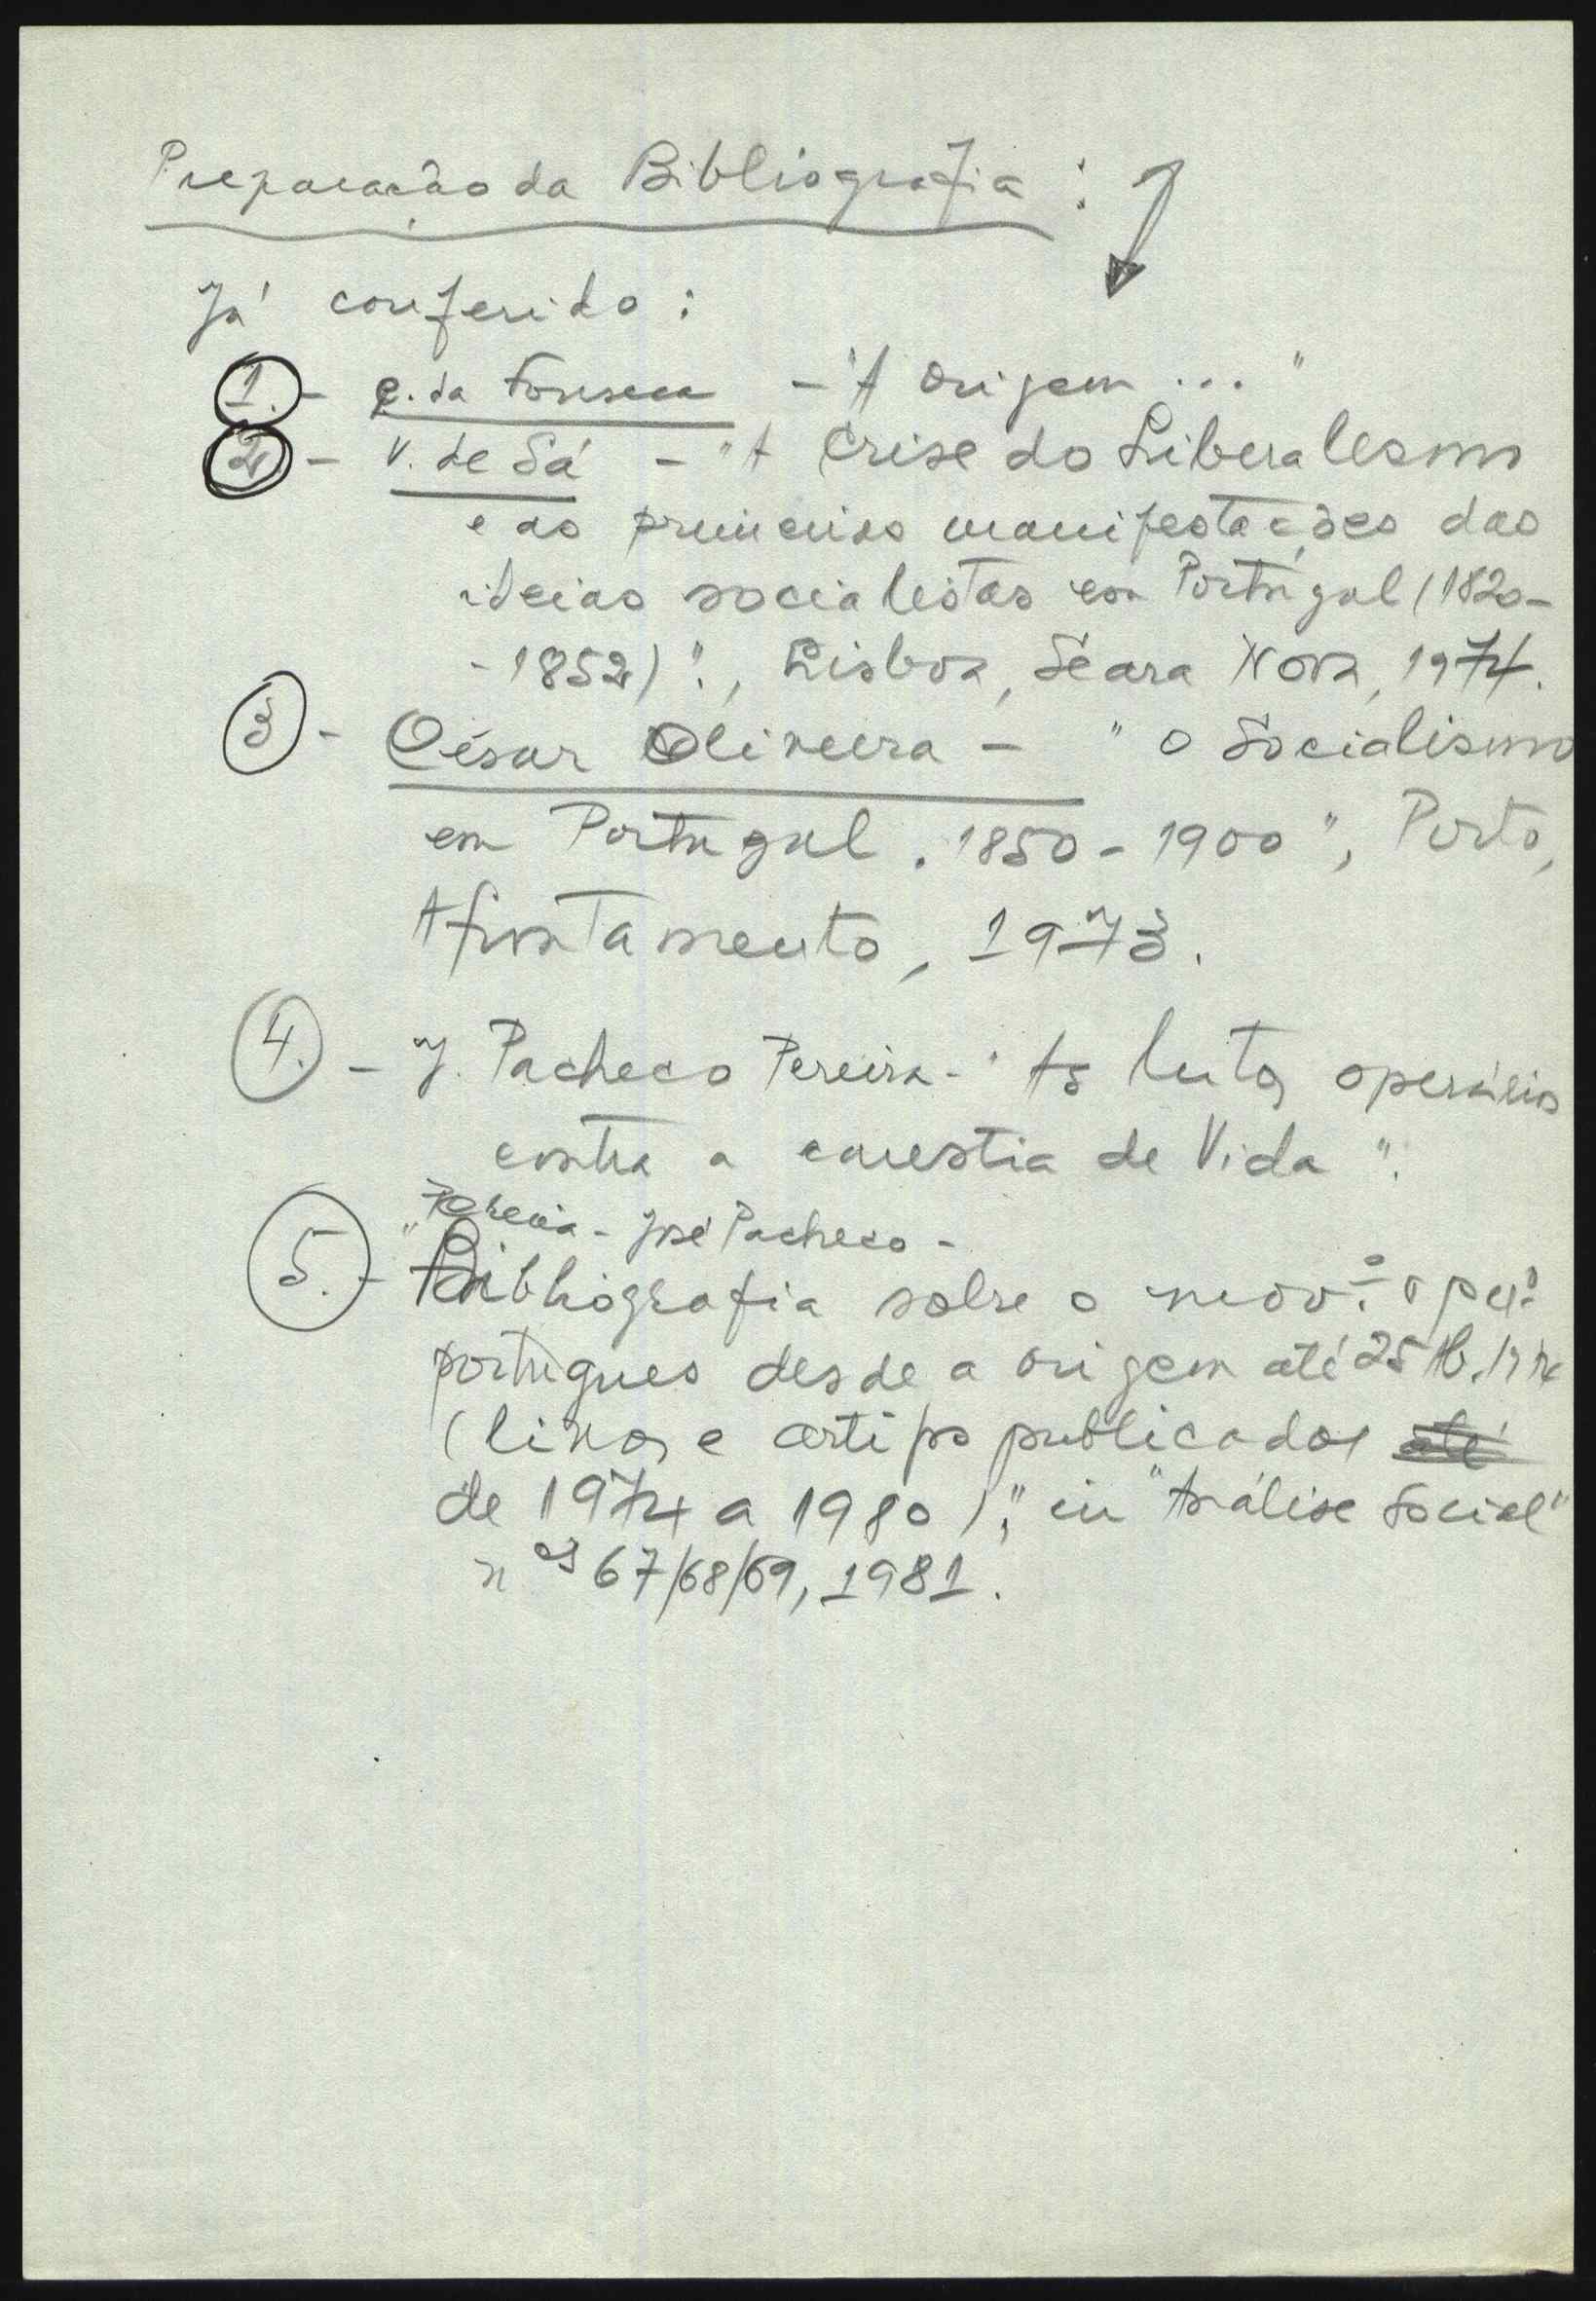 Preparação da Bibliografia :
Já conferido :
1. - C. da Fonseca - "A origem ... "
2. - V. de Sá - "A Crise do Liberalismo
e as primeiras manifestações das
ideias socialistas em Portugal (1820-
-1852)", Lisboa, Seara Nova, 1974.
3 - César Oliveira - "O Socialismo
em Portugal . 1850 - 1900", Porto,
Afrontamento, 1973.
4. - J. Pacheco Pereira - "As lutas operárias
contra a carestia de Vida".
Pereira - José Pacheco -
5. - "Bibliografia sobre o mov.º oper.º
português desde a origem até 25 Ab.
(livros e artigos publicados até
de 1974 a 1980)", in "Análise Social"
nos 67/68/69, 1981.